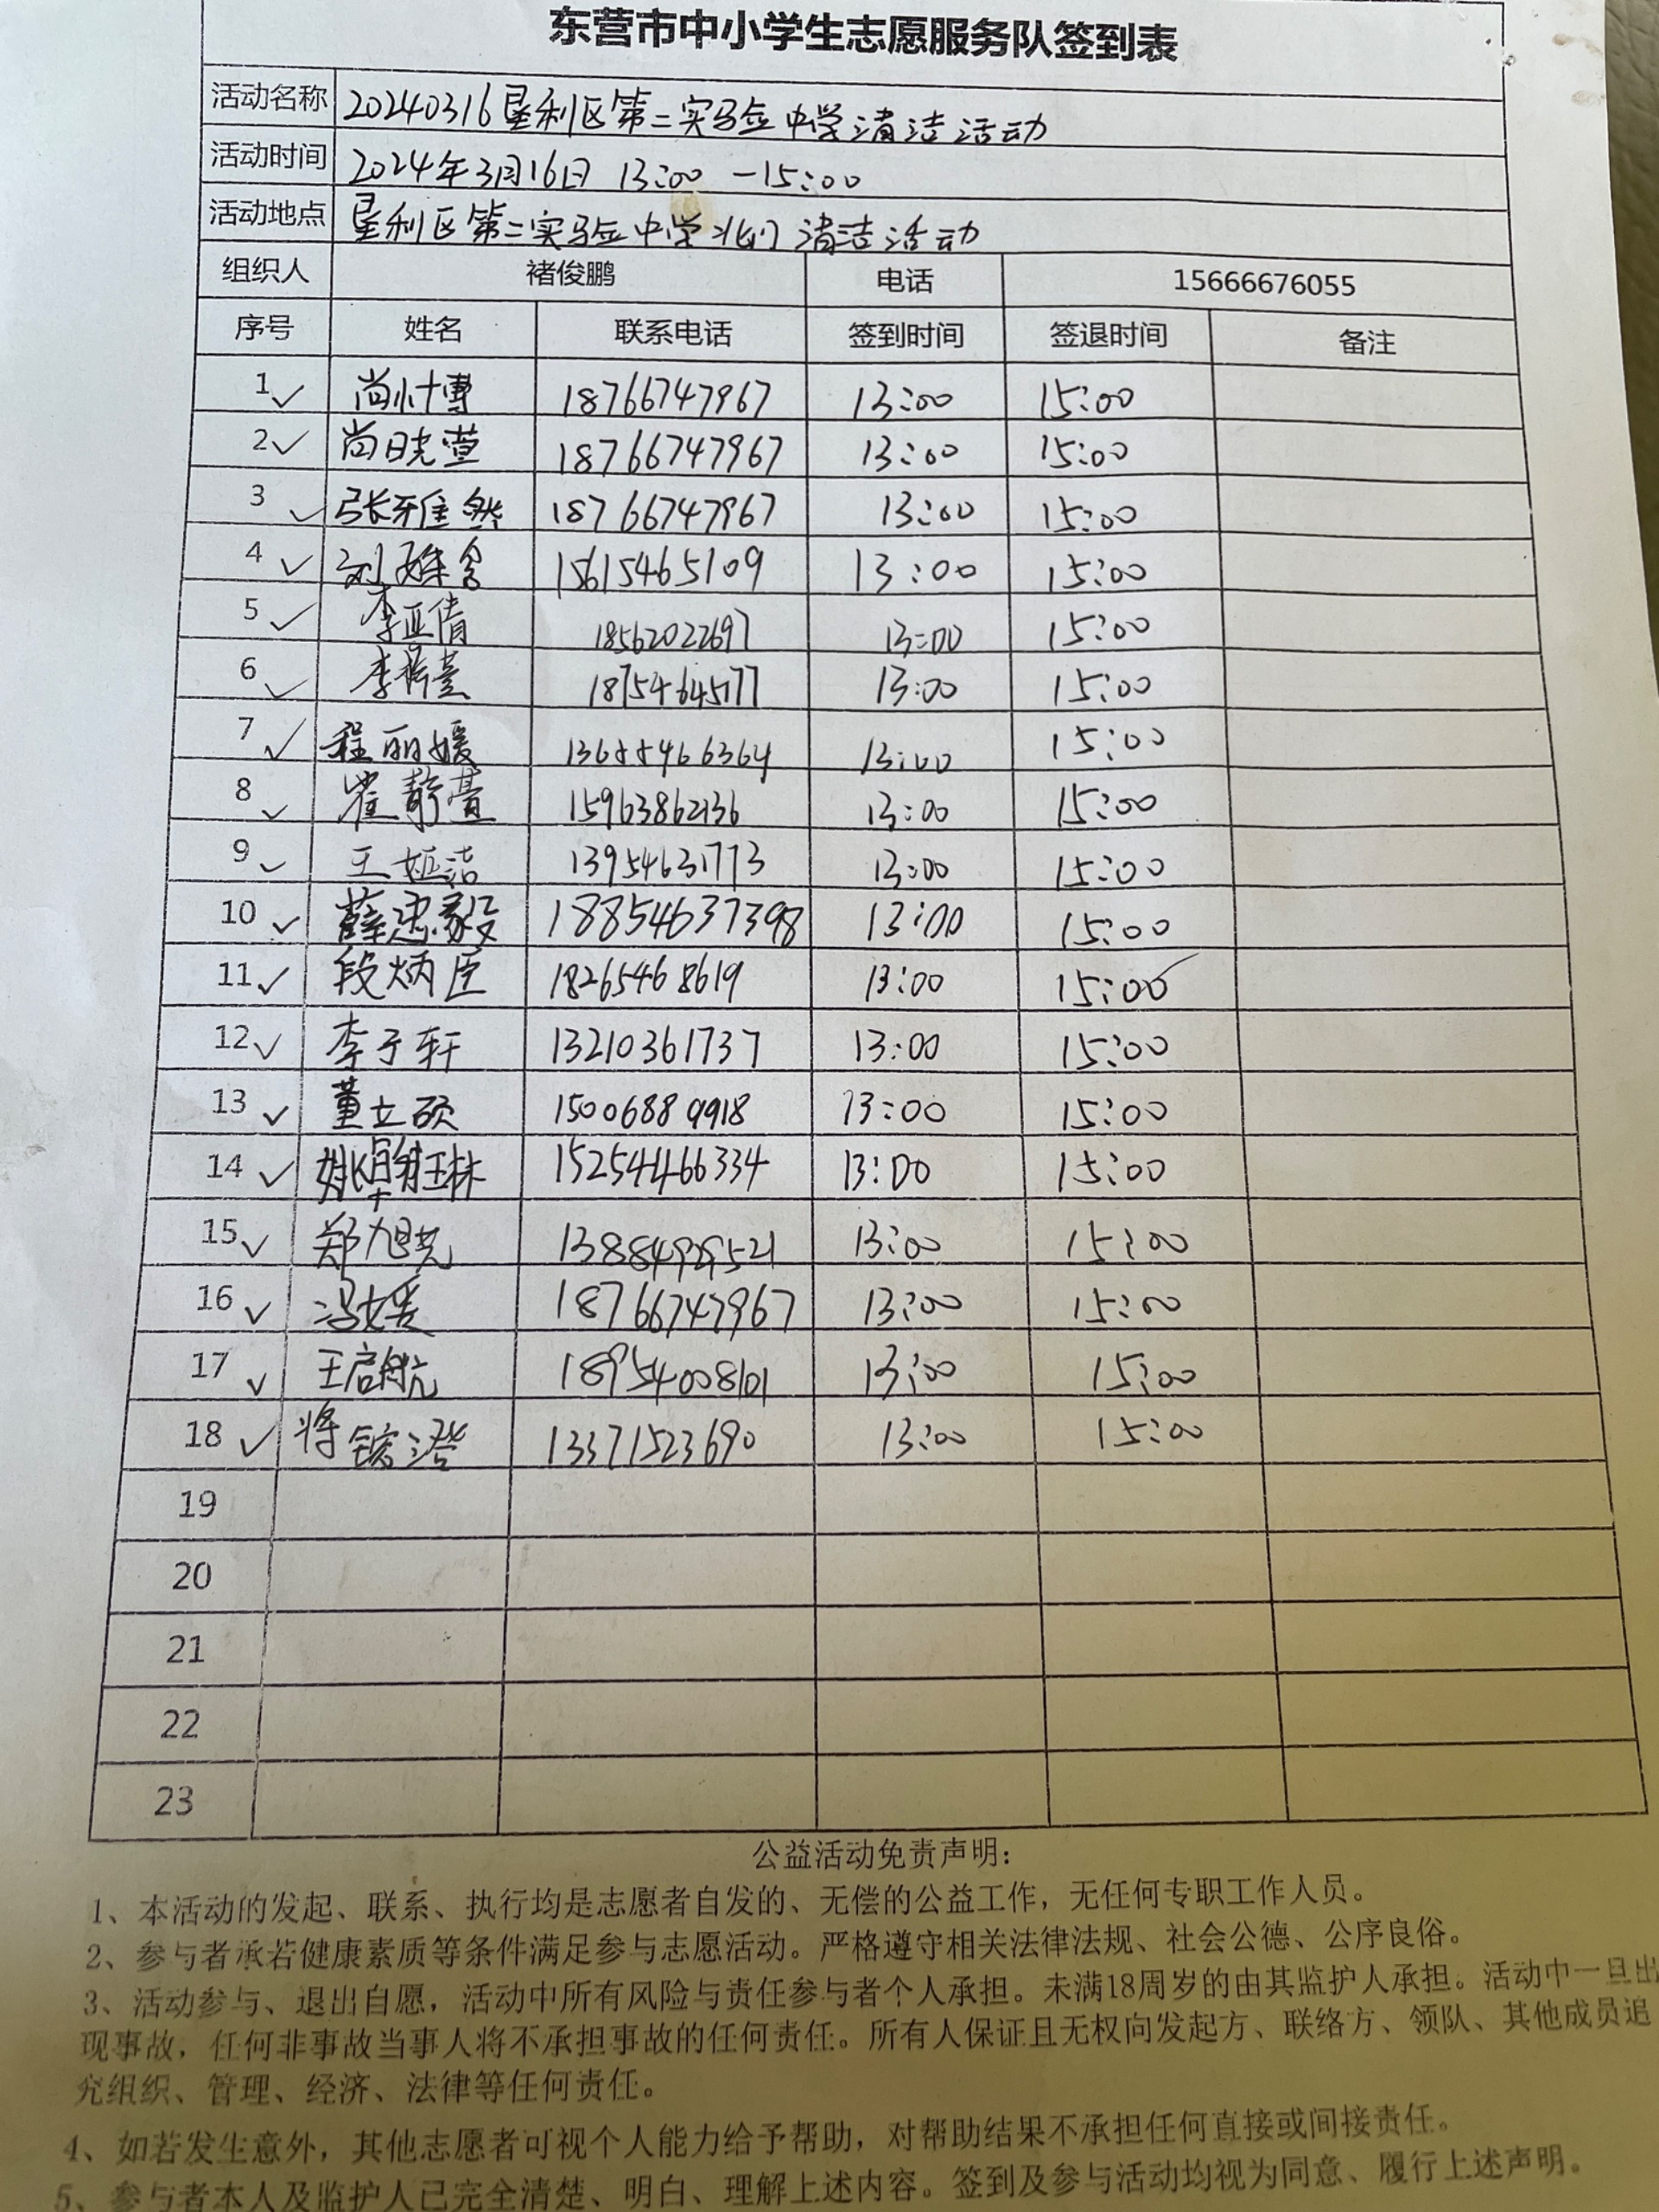 东营市中小学生志愿服务队签到表
活动名称 20240316垦利区第二实验中学清洁活动
活动时间 2024年3月16日 13:00-15:00
活动地点 垦利区第二实验中学北门清洁活动
组织人 褚俊鹏 电话 15666676055
序号 姓名 联系电话 签到时间 签退时间 备注
1 尚 博 18766747967 13:00 15:00
2 尚晓萱 18766747967 13:00 15:00
3 张雅 18766747967 13:00 15:00
4 刘 15615465109 13:00 15:00
5 李亚倩 18562022697 13:00 15:00
6 李 18754645177 13:00 15:00
7 程丽媛 13655466364 13:00 15:00
8 崔静 15963862136 13:00 15:00
9 王娅洁 13954631773 13:00 15:00
10 薛 毅 18854637398 13:00 15:00
11 段炳臣 18265468619 13:00 15:00
12 李子轩 13210361737 13:00 15:00
13 董立硕 15006889918 13:00 15:00
14 姚 15254466334 13:00 15:00
15 郑旭尧 13884929521 13:00 15:00
16 冯媛 18766747967 13:00 15:00
17 王启航 18954008101 13:00 15:00
18 将 澄 13371523690 13:00 15:00
19
20
21
22
23
公益活动免责声明：
1、本活动的发起、联系、执行均是志愿者自发的、无偿的公益工作，无任何专职工作人员。
2、参与者承若健康素质等条件满足参与志愿活动。严格遵守相关法律法规、社会公德、公序良俗。
3、活动参与、退出自愿，活动中所有风险与责任参与者个人承担。未满18周岁的由其监护人承担。活动中一旦出
现事故，任何非事故当事人将不承担事故的任何责任。所有人保证且无权向发起方、联络方、领队、其他成员追
究组织、管理、经济、法律等任何责任。
4、如若发生意外，其他志愿者可视个人能力给予帮助，对帮助结果不承担任何直接或间接责任。
5、参与者本人及监护人已完全清楚、明白、理解上述内容。签到及参与活动均视为同意、履行上述声明。